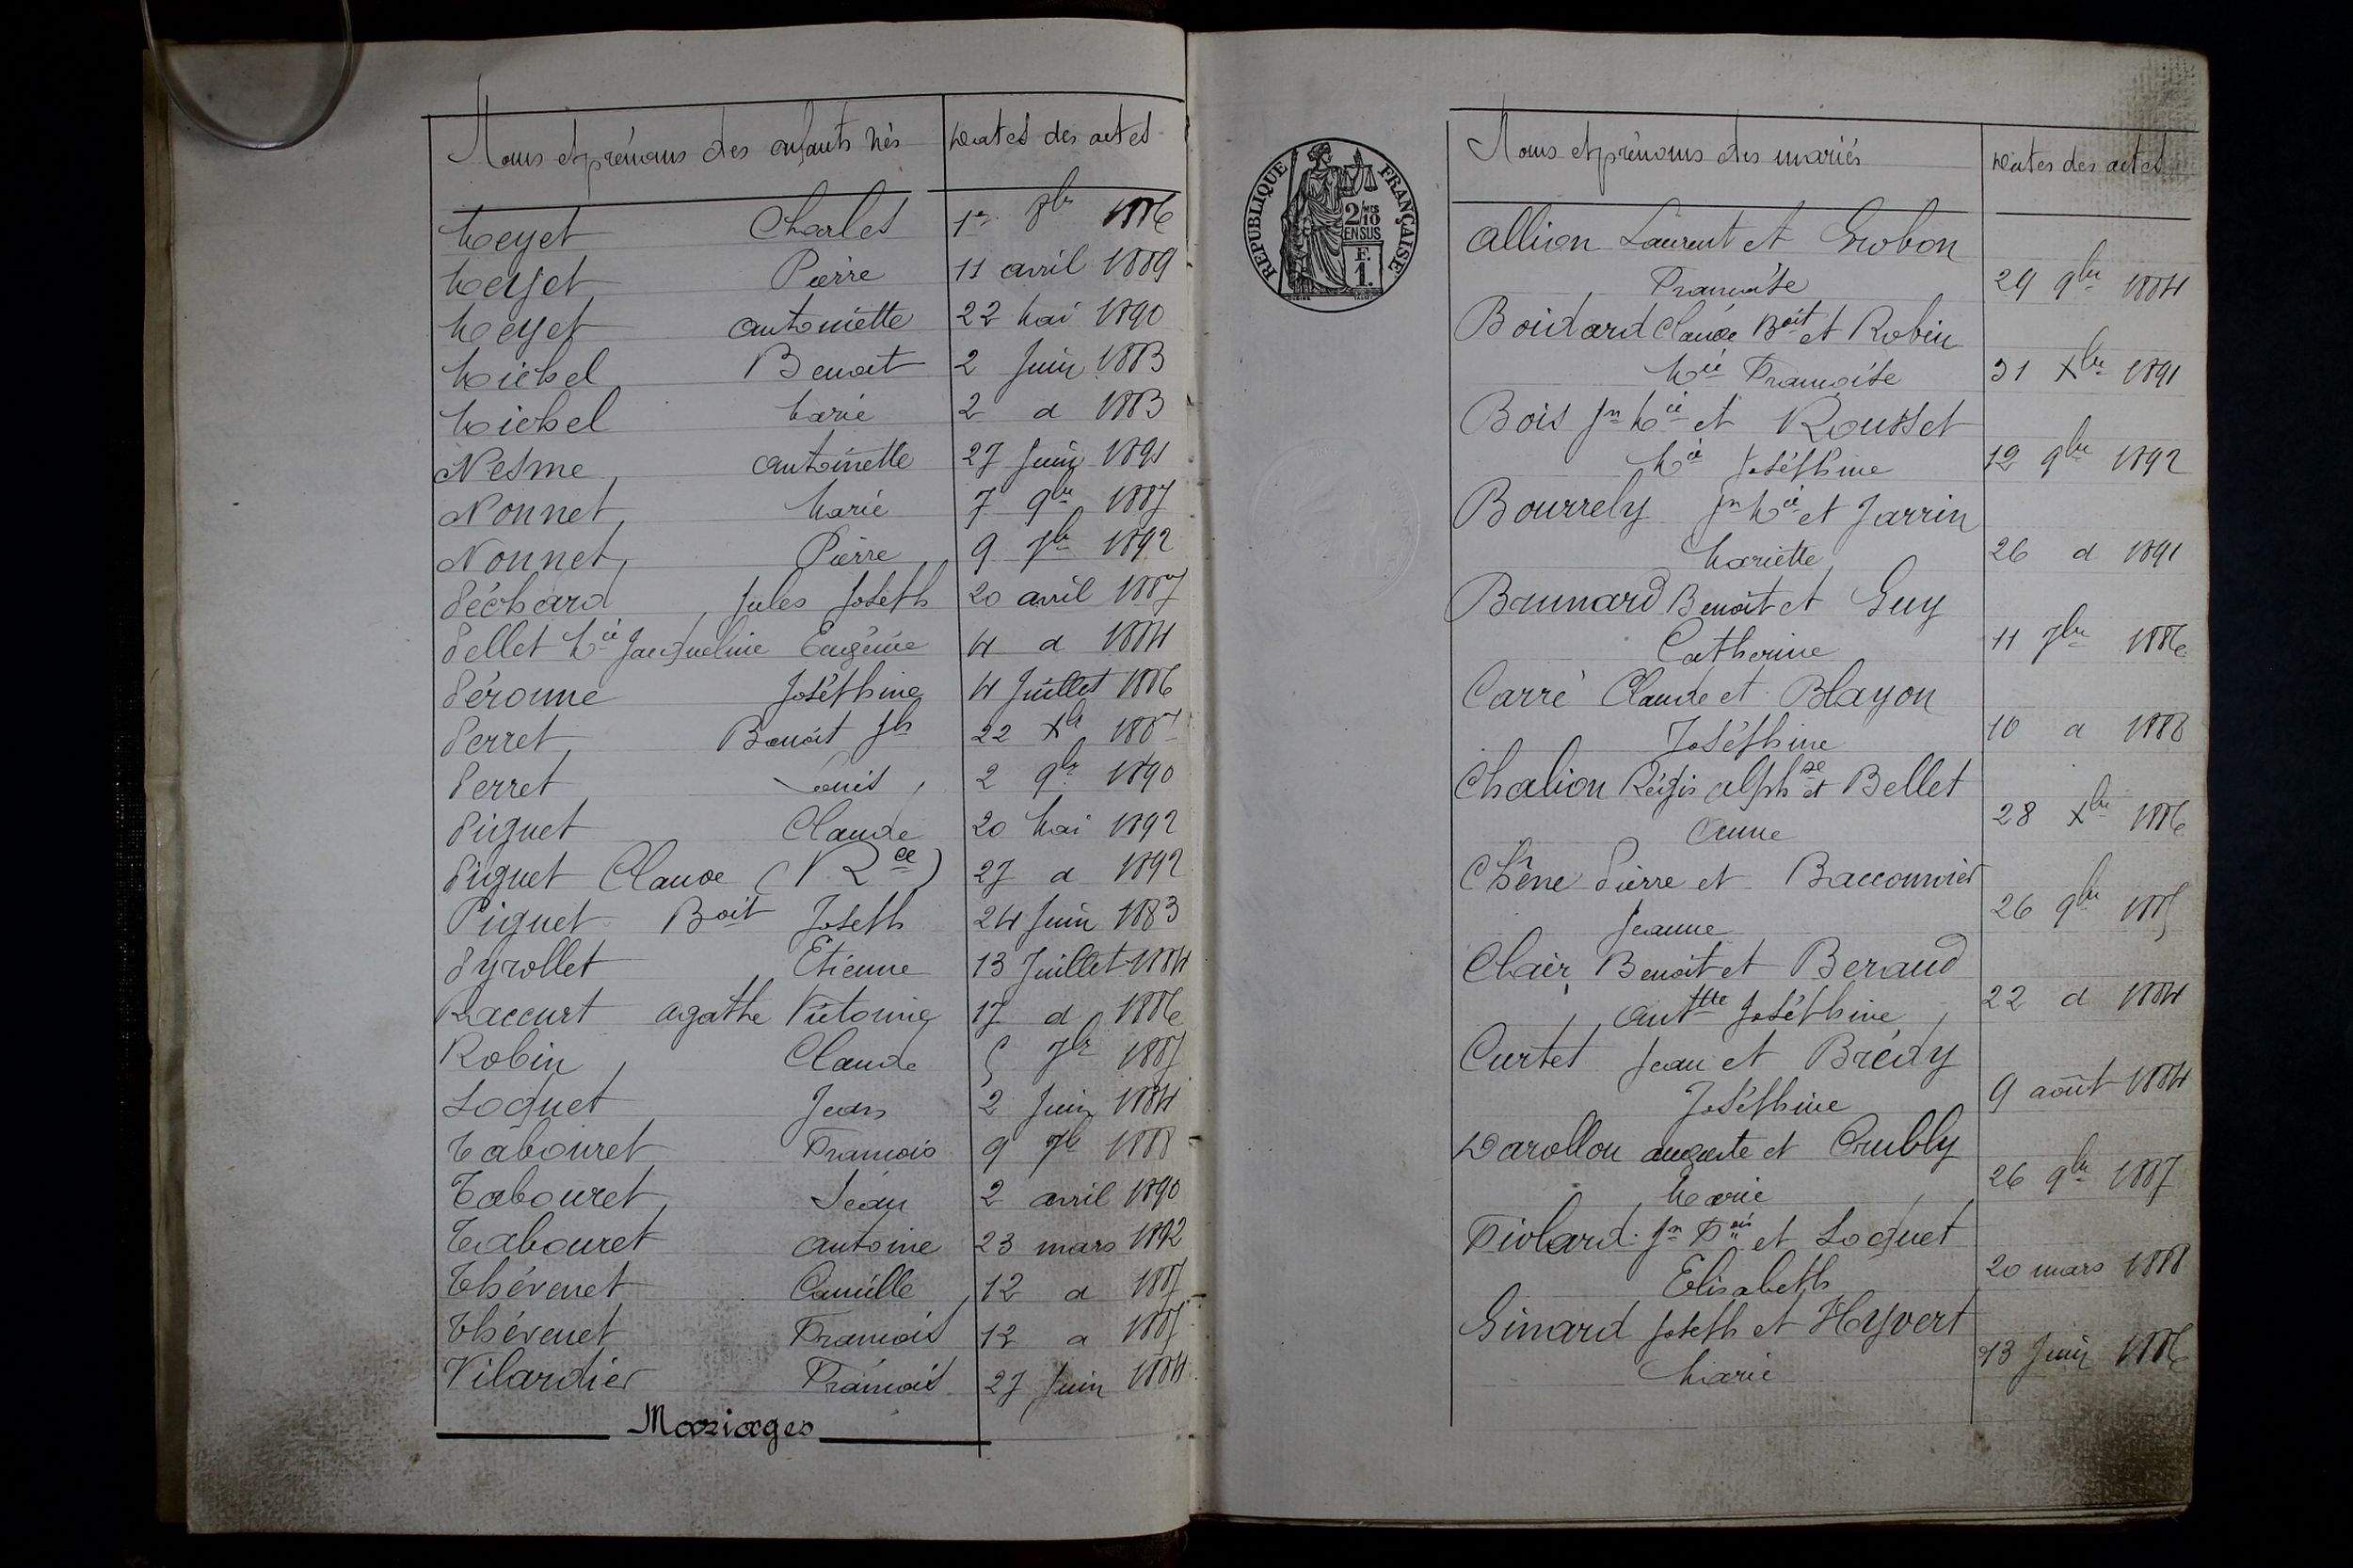 Noms et prénoms des enfants nés Dates des actes
Meyet Charles 1er 8bre 1886
Meyet Pierre 11 avril 1889
Meyet Antoinette 22 Mai 1890
Michel Benoit 2 Juin 1883
Michel Marie 2 d 1883
Nesme Antoinette 27 Juin 1891
Nonnet Marie 7 9bre 1887
Nonnet Pierre 9 7bre 1892
Péchard Jules Joseph 20 avril 1887
Pellet Mie Jacqueline Eugénie 4 d 1884
Péronne Joséphine 4 Juillet 1886
Perret Benoit Jh 22 Xbre
Perret Louis 2 9bre 1890
Piquet Claude 20 Mai 1892
Piquet Claude (N. Rce) 27 d 1892
Piquet Boit Joseph 24 Juin 1883
Pyrollet Etienne 13 Juillet 1884
Raccurt Agathe Victorine 17 d 1886
Robin Claude 5 7bre 1887
Soquet Jean 2 Juin 1884
Tabouret François 9 7bre 1888
Tabouret Jean 2 avril 1890
Tabouret Antoine 23 mars 1892
Thévenet Camille 12 d
Thévenet François 12 d
Vilardier François 27 Juin 1884
Mariages
REPUBLIQUE FRANÇAISE
2/10 MES
EN SUS
F.
1.
Noms et prénoms des mariés Dates des actes
Allion Laurent et Grobon
Françoise 29 9bre 1884
Boidard Claude Boit et Robin
Mie Françoise 31 Xbre 1891
Bois Jn Mie et Rousset
Mie Joséphine 12 9bre 1892
Bourrely Jn Mie et Jarrin
Mariette 26 d 1891
Brunnard Benoit et Guy
Catherine 11 7bre 1886
Carré Claude et Blayon
Joséphine 10 d 1888
Chalion Régis Alphse et Bellet
Anne 28 Xbre 1886
Chêne Pierre et Bacconnier
Jeanne 26 9bre 1885
Clair Benoit et Beraud
Anttte Joséphine 22 d 1884
Curtet Jean et Brédy
Joséphine 9 août 1884
Darollon Auguste et Crubly
Marie 26 9bre 1887
Fiolard Jn Fois et Soquet
Elisabeth 20 mars 1888
Ginard Joseph et Hyvert
Marie 13 Juin 1886